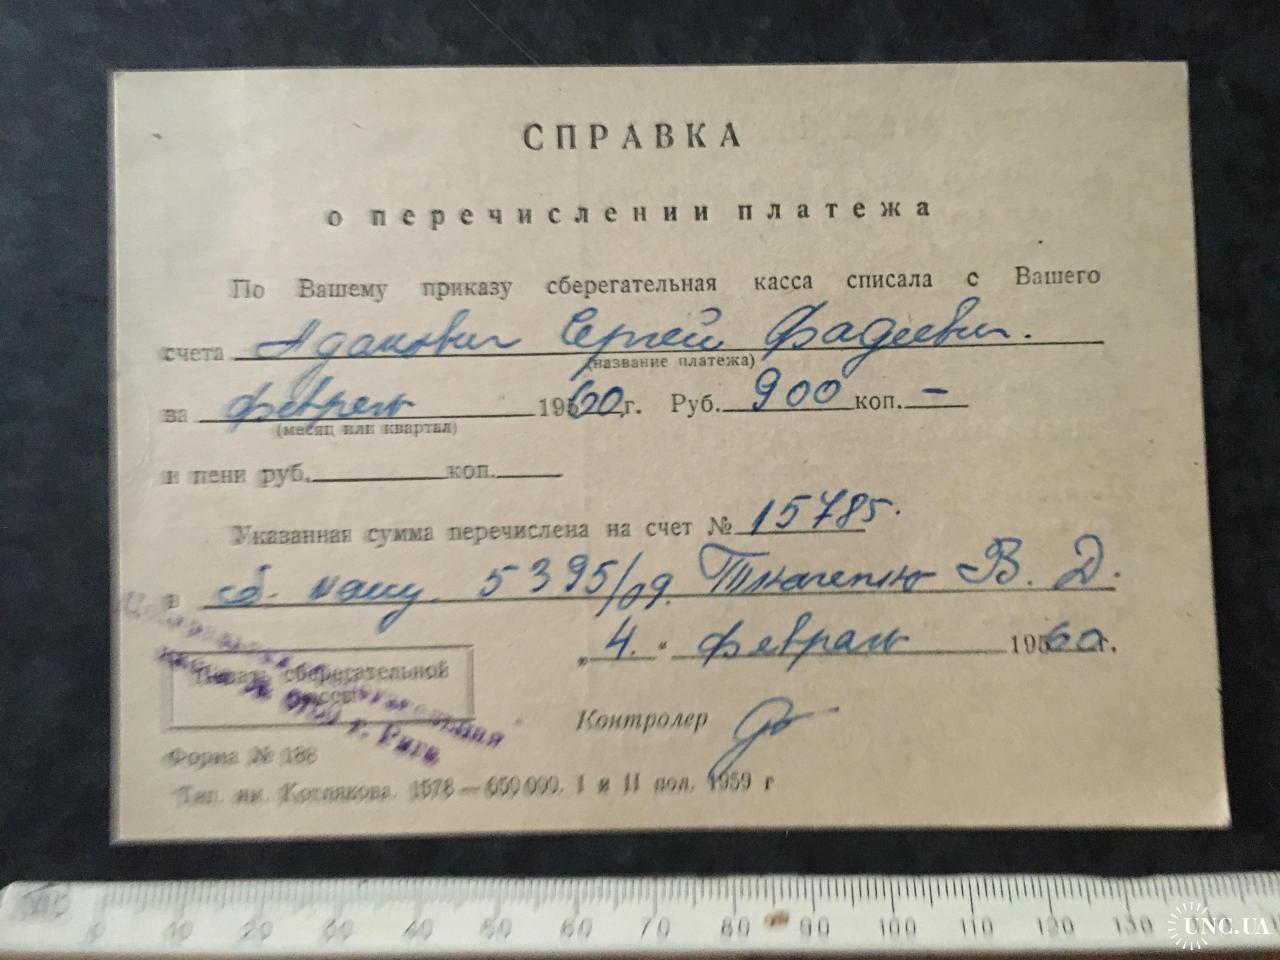 СПРАВКА
о перечислении платежа
По Вашему приказу сберегательная касса списала с Вашего
счета Адамович Сергей Фадеевич.
(название платежа)
за февраль 1960 г. Руб. 900 коп. —
(месяц или квартал)
и пени руб. коп.
Указанная сумма перечислена на счет № 15785.
в сб. кассу 5395/09. Ткаченко В. Д.
„4.“ февраля 1960 г.
Печать сберегательной
кассы
сберегательная
касса № г. Рига
Контролер
Форма № 188
Тип. им. Котлякова. 1578—650 000. I и II пол. 1959 г
0 10 20 30 40 50 60 70 80 90 100 110 120 130
UNC.UA